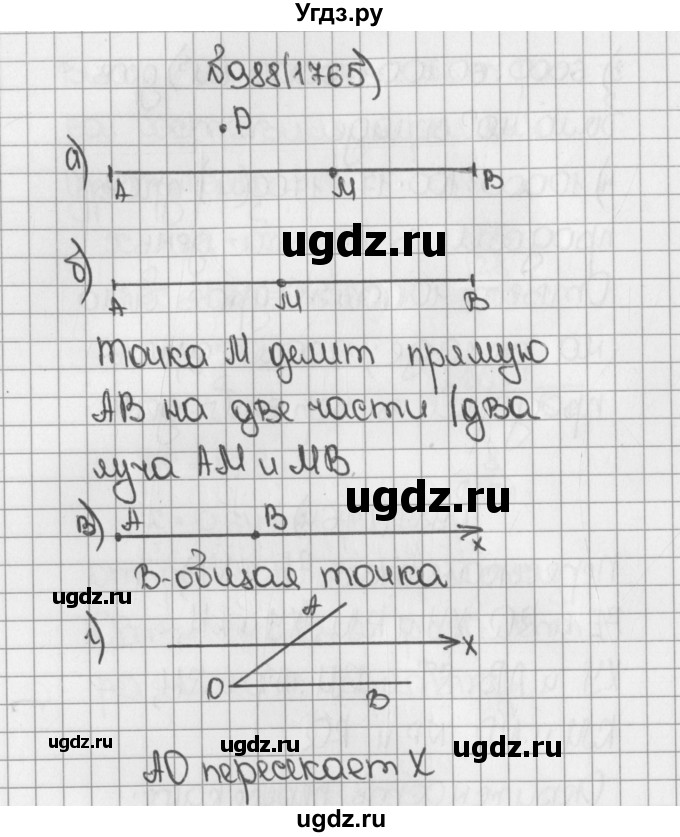 Угдз.ру
№988(1765)
.D
а) A M B
ugdz.ru
б) A M B
Точка M делит прямую
AB на две части (два
луча AM и MB
ugdz.ru
в) A B x
B-общая точка
ugdz.ru
A
г) x
O B
ugdz.ru ugdz.ru ugdz.ru
AO пересекает X
ugdz.ru